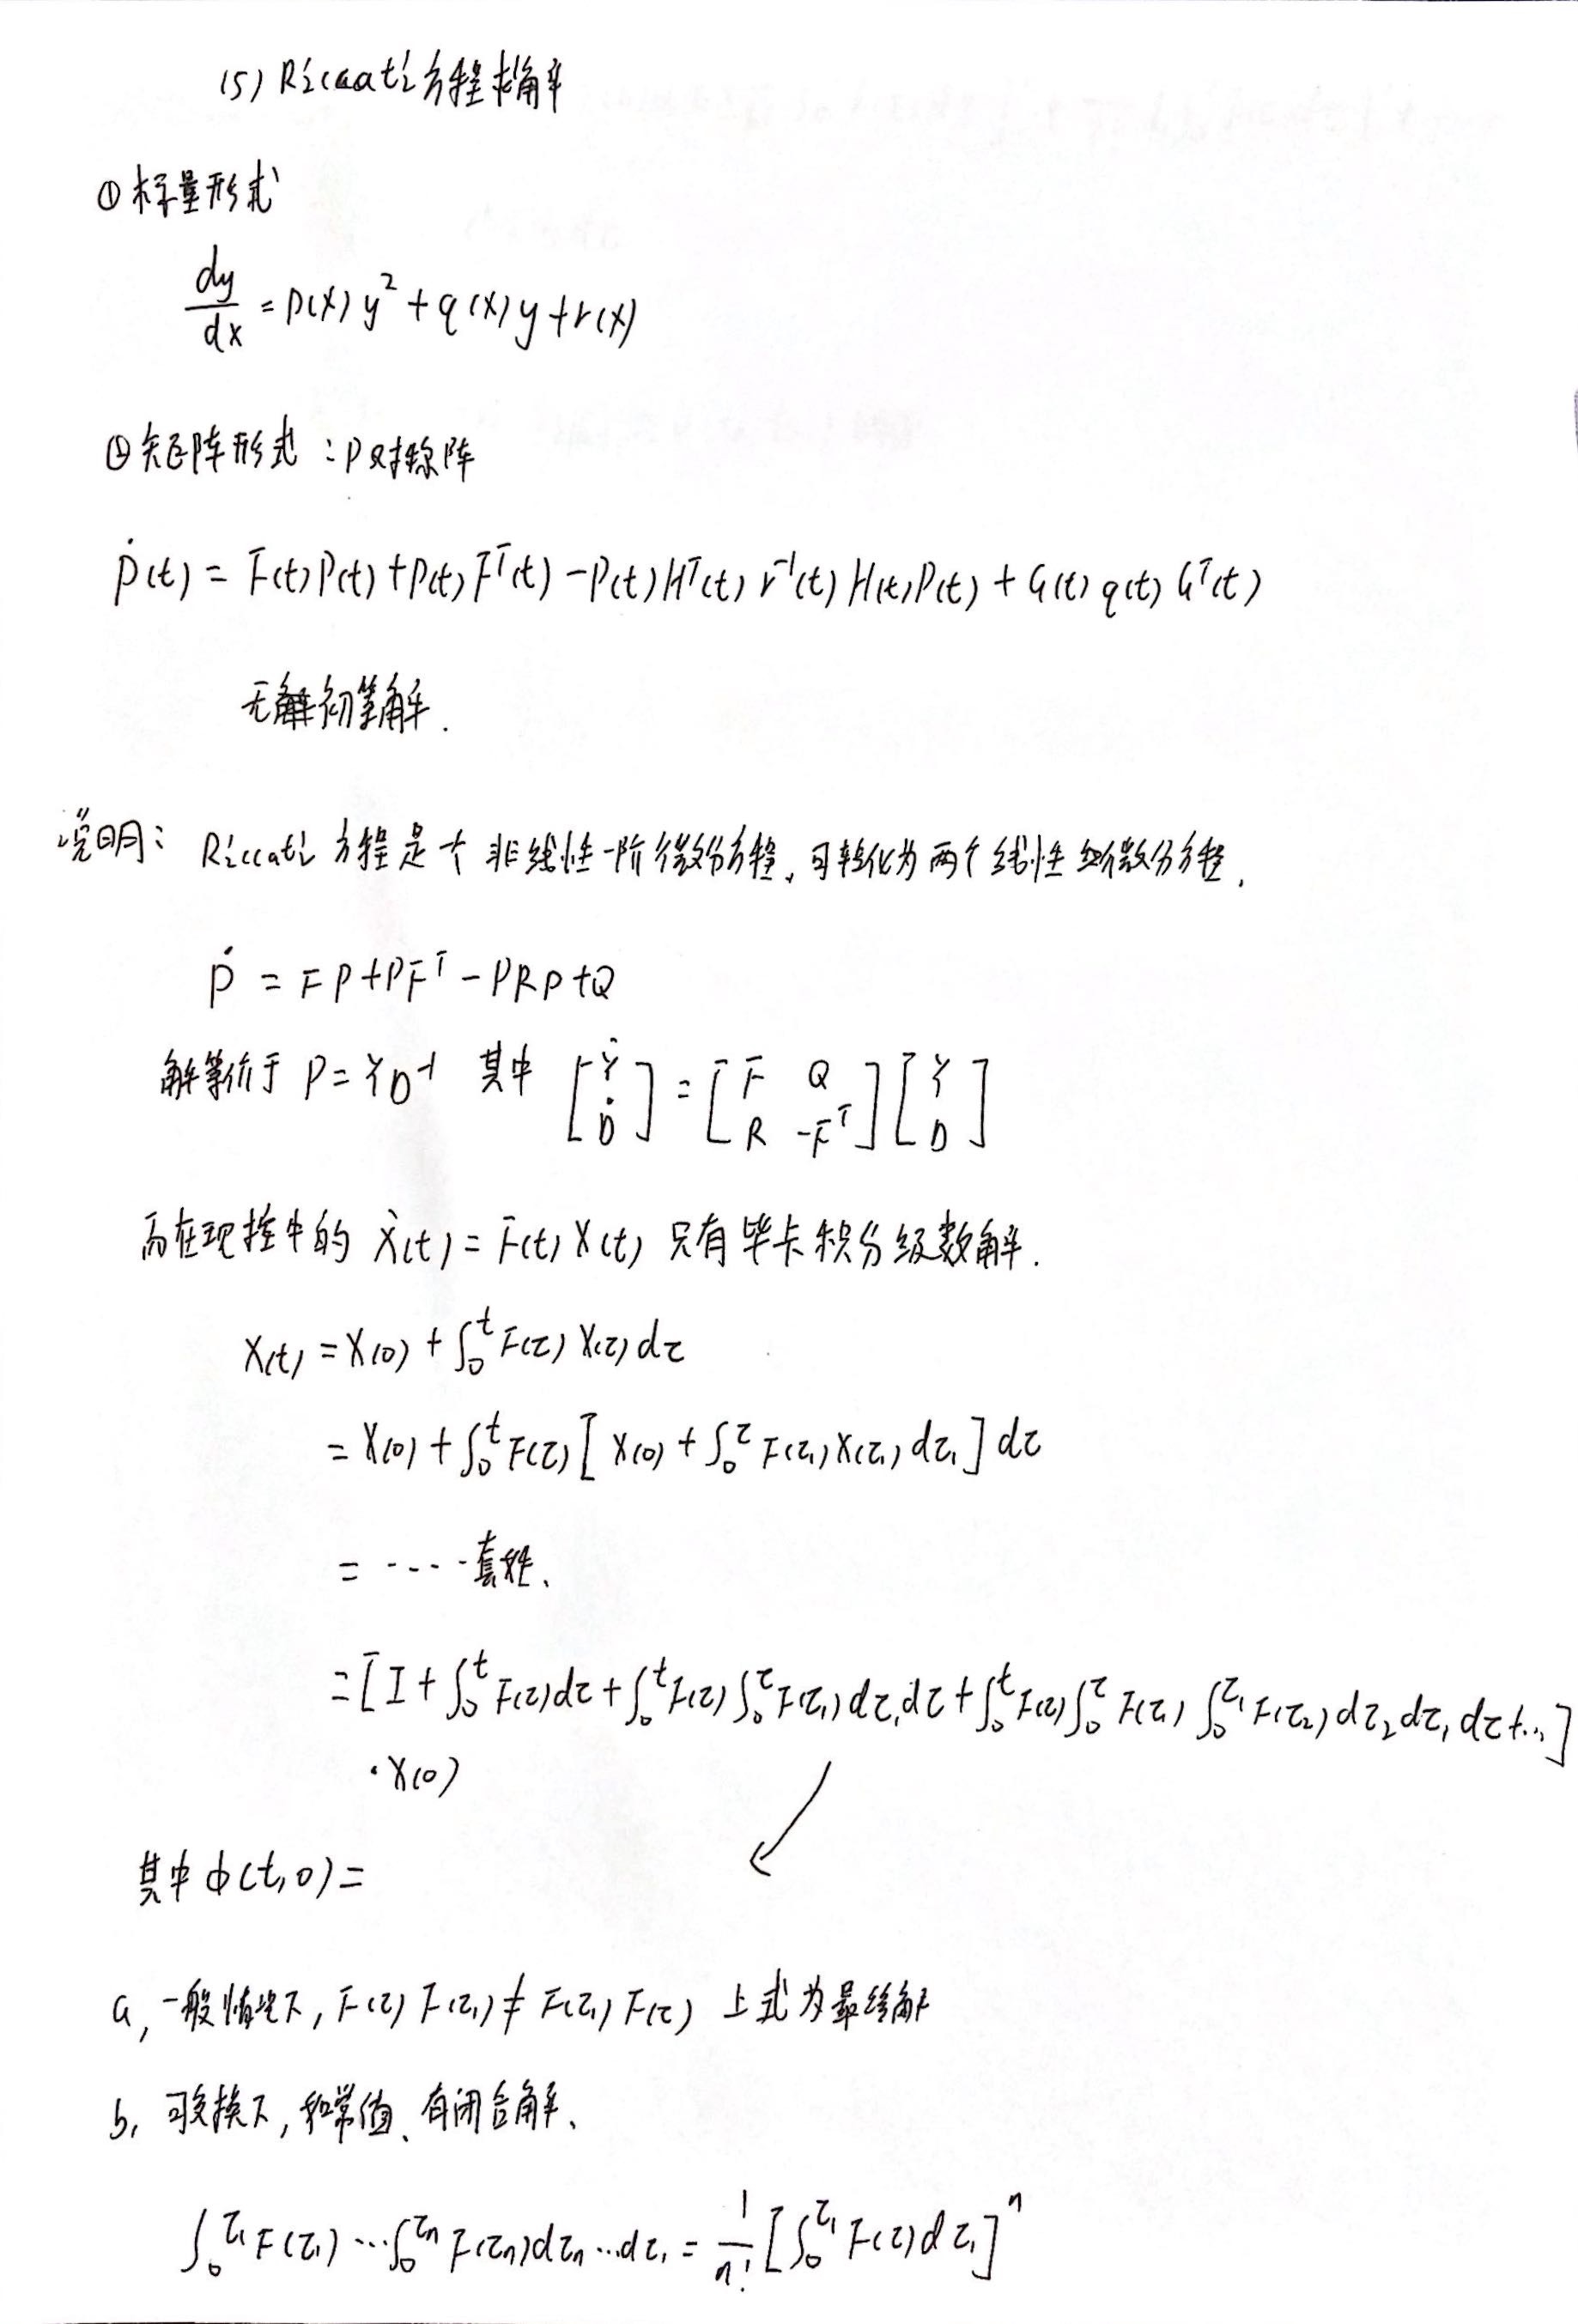 (5) Riccati方程求解
① 标量形式
dy/dx = p(x) y² + q(x) y + r(x)
② 矩阵形式：P对称阵
Ṗ(t) = F(t)P(t) + P(t)Fᵀ(t) - P(t)Hᵀ(t) r⁻¹(t) H(t)P(t) + G(t) q(t) Gᵀ(t)
无初等解.
说明： Riccati 方程是个非线性一阶微分方程, 可转化为两个线性微分方程.
Ṗ = FP + PFᵀ - PRP + Q
解等价于 P = YD⁻¹ 其中 [Ẏ; Ḋ] = [F Q; R -Fᵀ] [Y; D]
而在现控中的 Ẋ(t) = F(t) X(t) 只有毕卡积分级数解.
X(t) = X(0) + ∫₀ᵗ F(τ) X(τ) dτ
= X(0) + ∫₀ᵗ F(τ) [ X(0) + ∫₀^τ F(τ₁) X(τ₁) dτ₁ ] dτ
= ···· 套娃、
= [ I + ∫₀ᵗ F(τ)dτ + ∫₀ᵗ F(τ) ∫₀^τ F(τ₁) dτ₁dτ + ∫₀ᵗ F(τ) ∫₀^τ F(τ₁) ∫₀^τ₁ F(τ₂) dτ₂ dτ₁ dτ + ... ]
· X(0)
其中 ϕ(t,0) =
a, 一般情况下, F(τ) F(τ₁) ≠ F(τ₁) F(τ) 上式为最终解
b, 可交换下, 和常值、有闭合解、
∫₀^τ₁ F(τ₁) ··· ∫₀^τn F(τn) dτn ... dτ₁ = 1/n! [ ∫₀^τ₁ F(τ) dτ₁ ]ⁿ